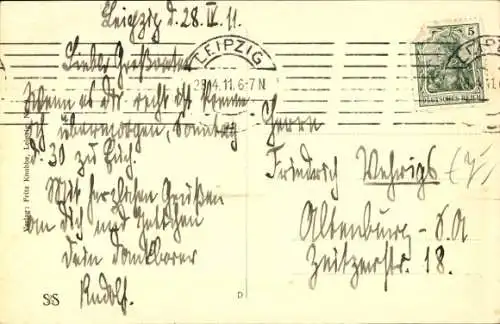 Leipzig d. 28. IV. 11.
LEIPZIG
28.4.11. 6-7 N
5
DEUTSCHES REICH
Lieber Großvater
Wenn es dir recht ist komme
ich übermorgen, Sonntag
d. 30 zu Euch.
Mit herzlichen Grüßen
an Dich und
Dein dankbarer
Rudolf.
Herrn
Friedrich Vehrigs
Altenburg - S.A
Zeitzerstr. 18.
Verlag: Fritz Knobbe,
S/S
D